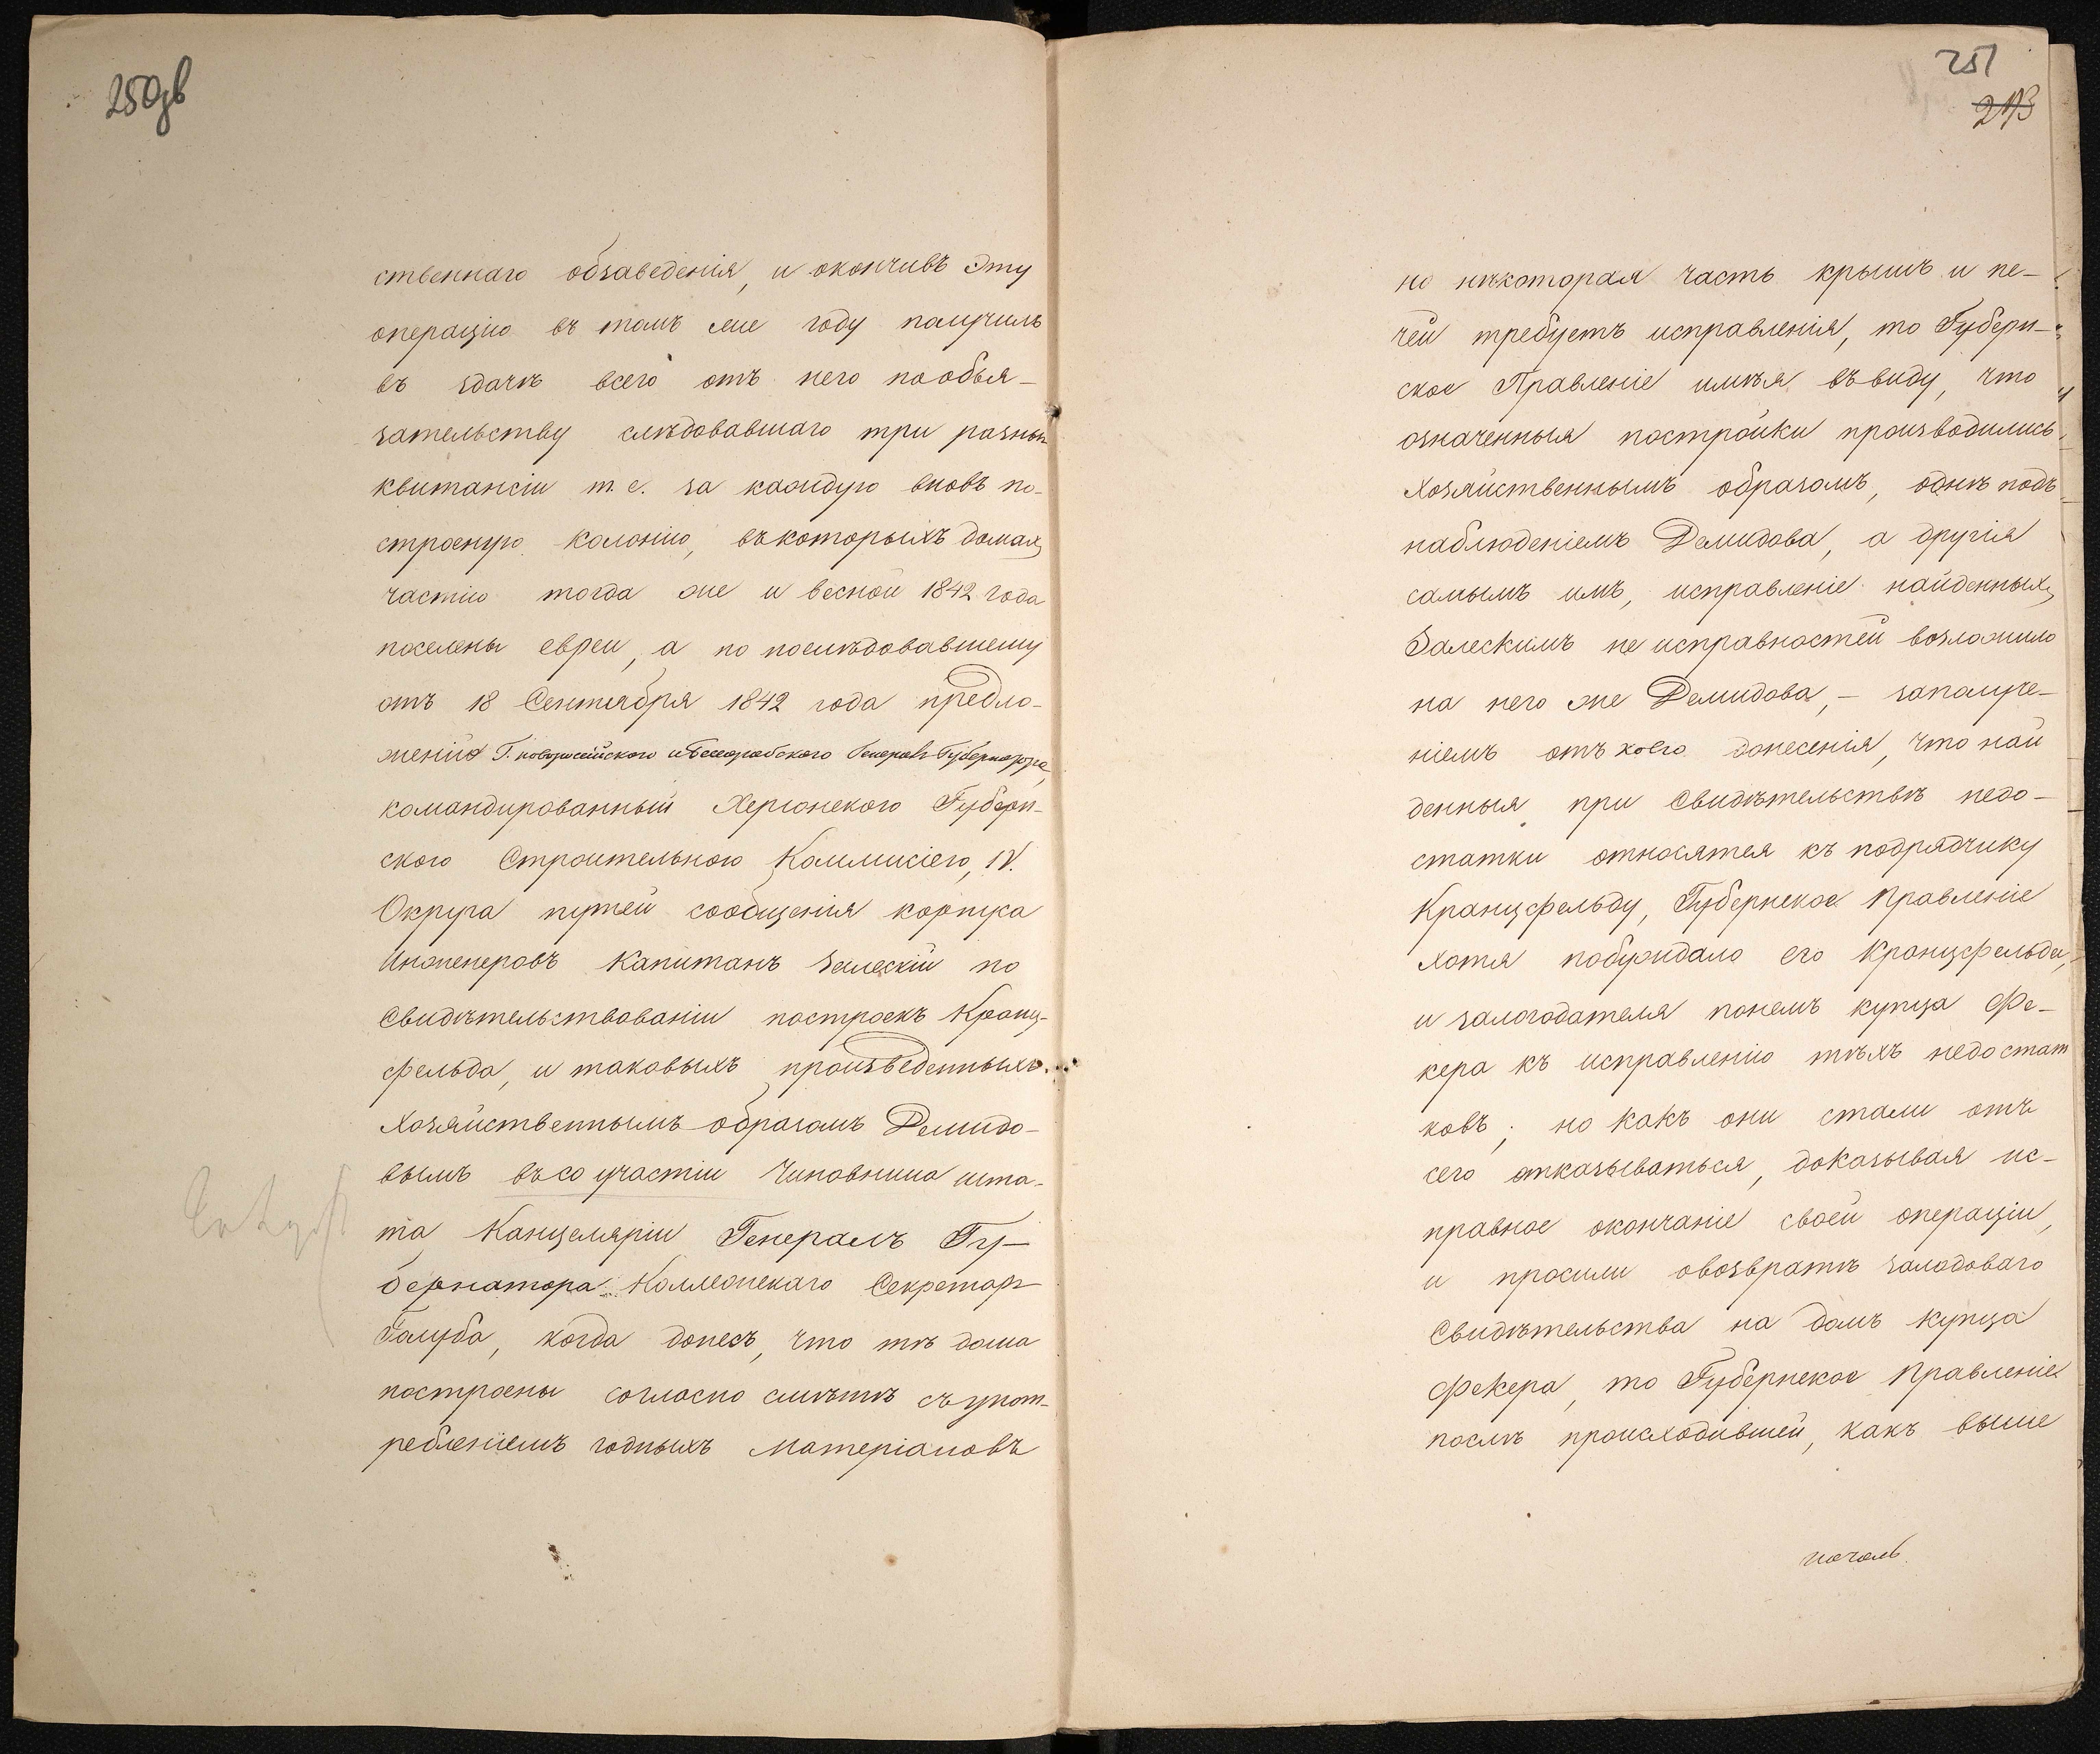 250 об
ственнаго обзаведенія, и окончивъ эту
операцію въ томъ же году получилъ
въ здачѣ всего отъ него по обья-
зательству слѣдовавшаго три разныя
квитансіи т. е. за каждую вновь по-
строеную колонію, въ которыхъ домахъ
частію тогда же и весной 1842 года
поселены евреи, а по послѣдовавшему
отъ 18 Сентября 1842 года предло-
женію Г. новороссійского и Бессарабского Генералъ Губернатора,
командированный Херсонского Губерн-
ского Строительною Коммисіею, IV.
Округа путей сообщенія корпуса
Инженеровъ Капитанъ Залескій по
свидѣтельствованіи построекъ Кранц-
фельда, и таковыхъ произведенныхъ
хозяйственнымъ образомъ Демидо-
вымъ въ со участіи Чиновника шта-
та Канцеляріи Генералъ Гу-
бернатора Коллежскаго Секретаря
Голуба, когда донесъ, что тѣ дома
построены согласно смѣтѣ съ упот-
ребленіемъ годныхъ матеріаловъ
251
213
но нѣкоторая часть крышъ и пе-
чей требуетъ исправленія, то Губерн-
ское Правленіе имѣя въ виду, что
означенныя постройки производились
хозяйственнымъ образомъ, однѣ подъ
наблюденіемъ Демидова, а другія
самымъ имъ, исправленіе найденныхъ
Залескимъ не исправностей возложило
на него же Демидова, – за получе-
ніемъ отъ коего донесенія, что най
денныя при свидѣтельствѣ недо-
статки относятся къ подрядчику
Кранцфельду, Губернское Правленіе
хотя побуждало его Кранцфельда,
и залогодателя по немъ купца Фе-
кера къ исправленію тѣхъ недостат
ковъ; но какъ они стали отъ
сего отказываться, доказывая ис-
правное окончаніе своей операціи,
и просили о возвратѣ залогового
свидѣтельства на домъ купца
Фекера, то Губернское Правленіе
послѣ происходившей, какъ выше